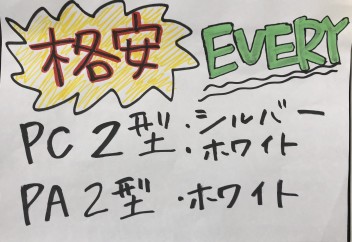 格安 EVERY
PC2型・シルバー
・ホワイト
PA2型・ホワイト